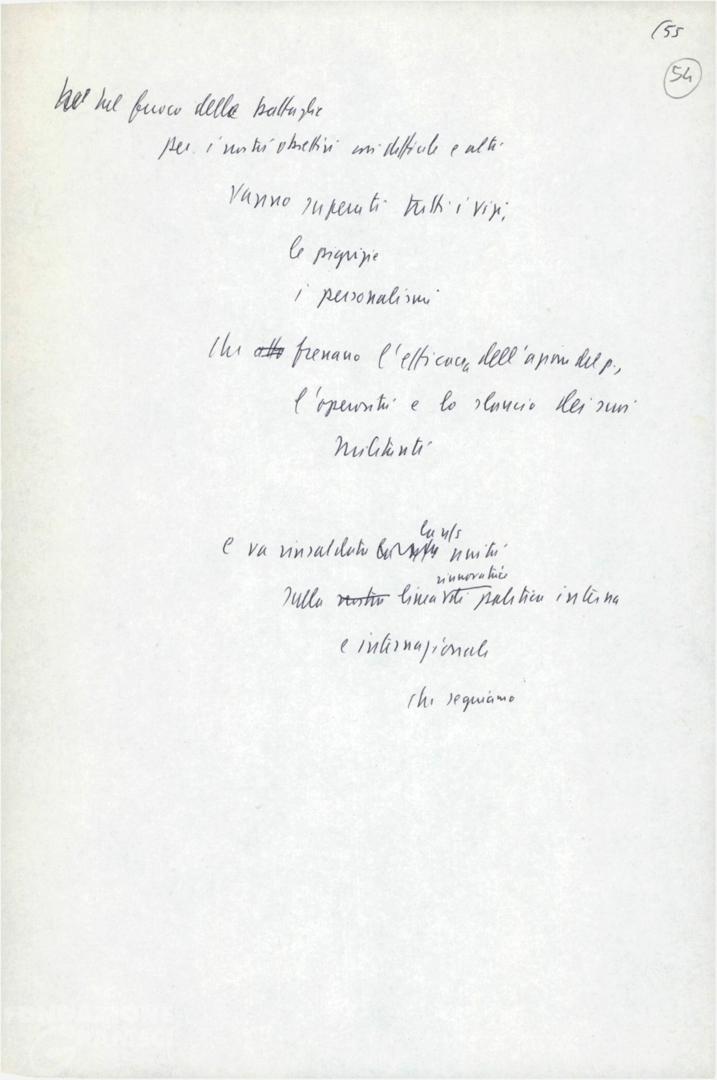 (55
54
nel fuoco della battaglia
per i nostri obiettivi così difficili e alti
vanno superati tutti i vizi,
le pigrizie
i personalismi
che frenano l'efficacia dell'azione del p.,
l'operosità e lo slancio dei suoi
militanti
la n/s
e va rinsaldata unità
rinnovatrice
sulla nostra linea di politica interna
e internazionale
che seguiamo